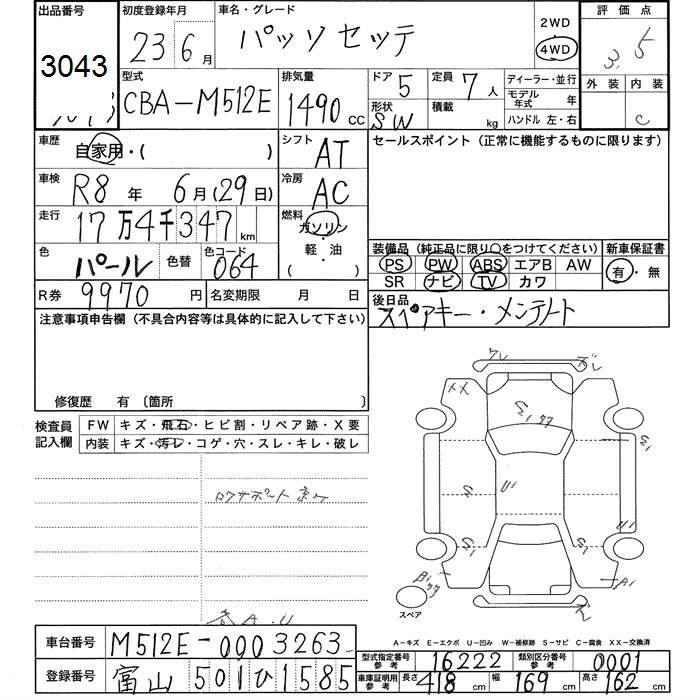 出品番号 初度登録年月 車名・グレード 2WD 評価点
3043 23年6月 パッソセッテ 4WD 3.5
外装 内装
C
型式 排気量 ドア 定員 ディーラー・並行
CBA-M512E 1490 CC 5 7人 モデル年式 年
形状 SW 積載 kg ハンドル 左・右
車歴 自家用・( ) シフト AT セールスポイント (正常に機能するものに限ります)
車検 R8年 6月(29日) 冷房 AC
走行 17万4千347km 燃料 ガソリン・軽・油 ( )
色 パール 色替 色コード 064
装備品 (純正品に限り○をつけてください) 新車保証書
PS PW ABS エアB AW 有・無
SR ナビ TV カワ
R券 9970円 名変期限 月 日 後日品
スペアキー・メンテノート
注意事項申告欄 (不具合内容等は具体的に記入して下さい)
修復歴 有 〔箇所 〕
検査員記入欄 FW キズ・飛石・ヒビ割・リペア跡・X要
内装 キズ・汚レ・コゲ・穴・スレ・キレ・破レ
ロワサポート
各A.U
スペア
A-キズ E-エクボ U-凹み W-補修跡 S-サビ C-腐食 XX-交換済
車台番号 M512E-0003263
型式指定番号 参考 16222 類別区分番号 参考 0001
登録番号 富山 501 ひ 1585
車庫証明用 参考 長さ 418cm 幅 169cm 高さ 162cm